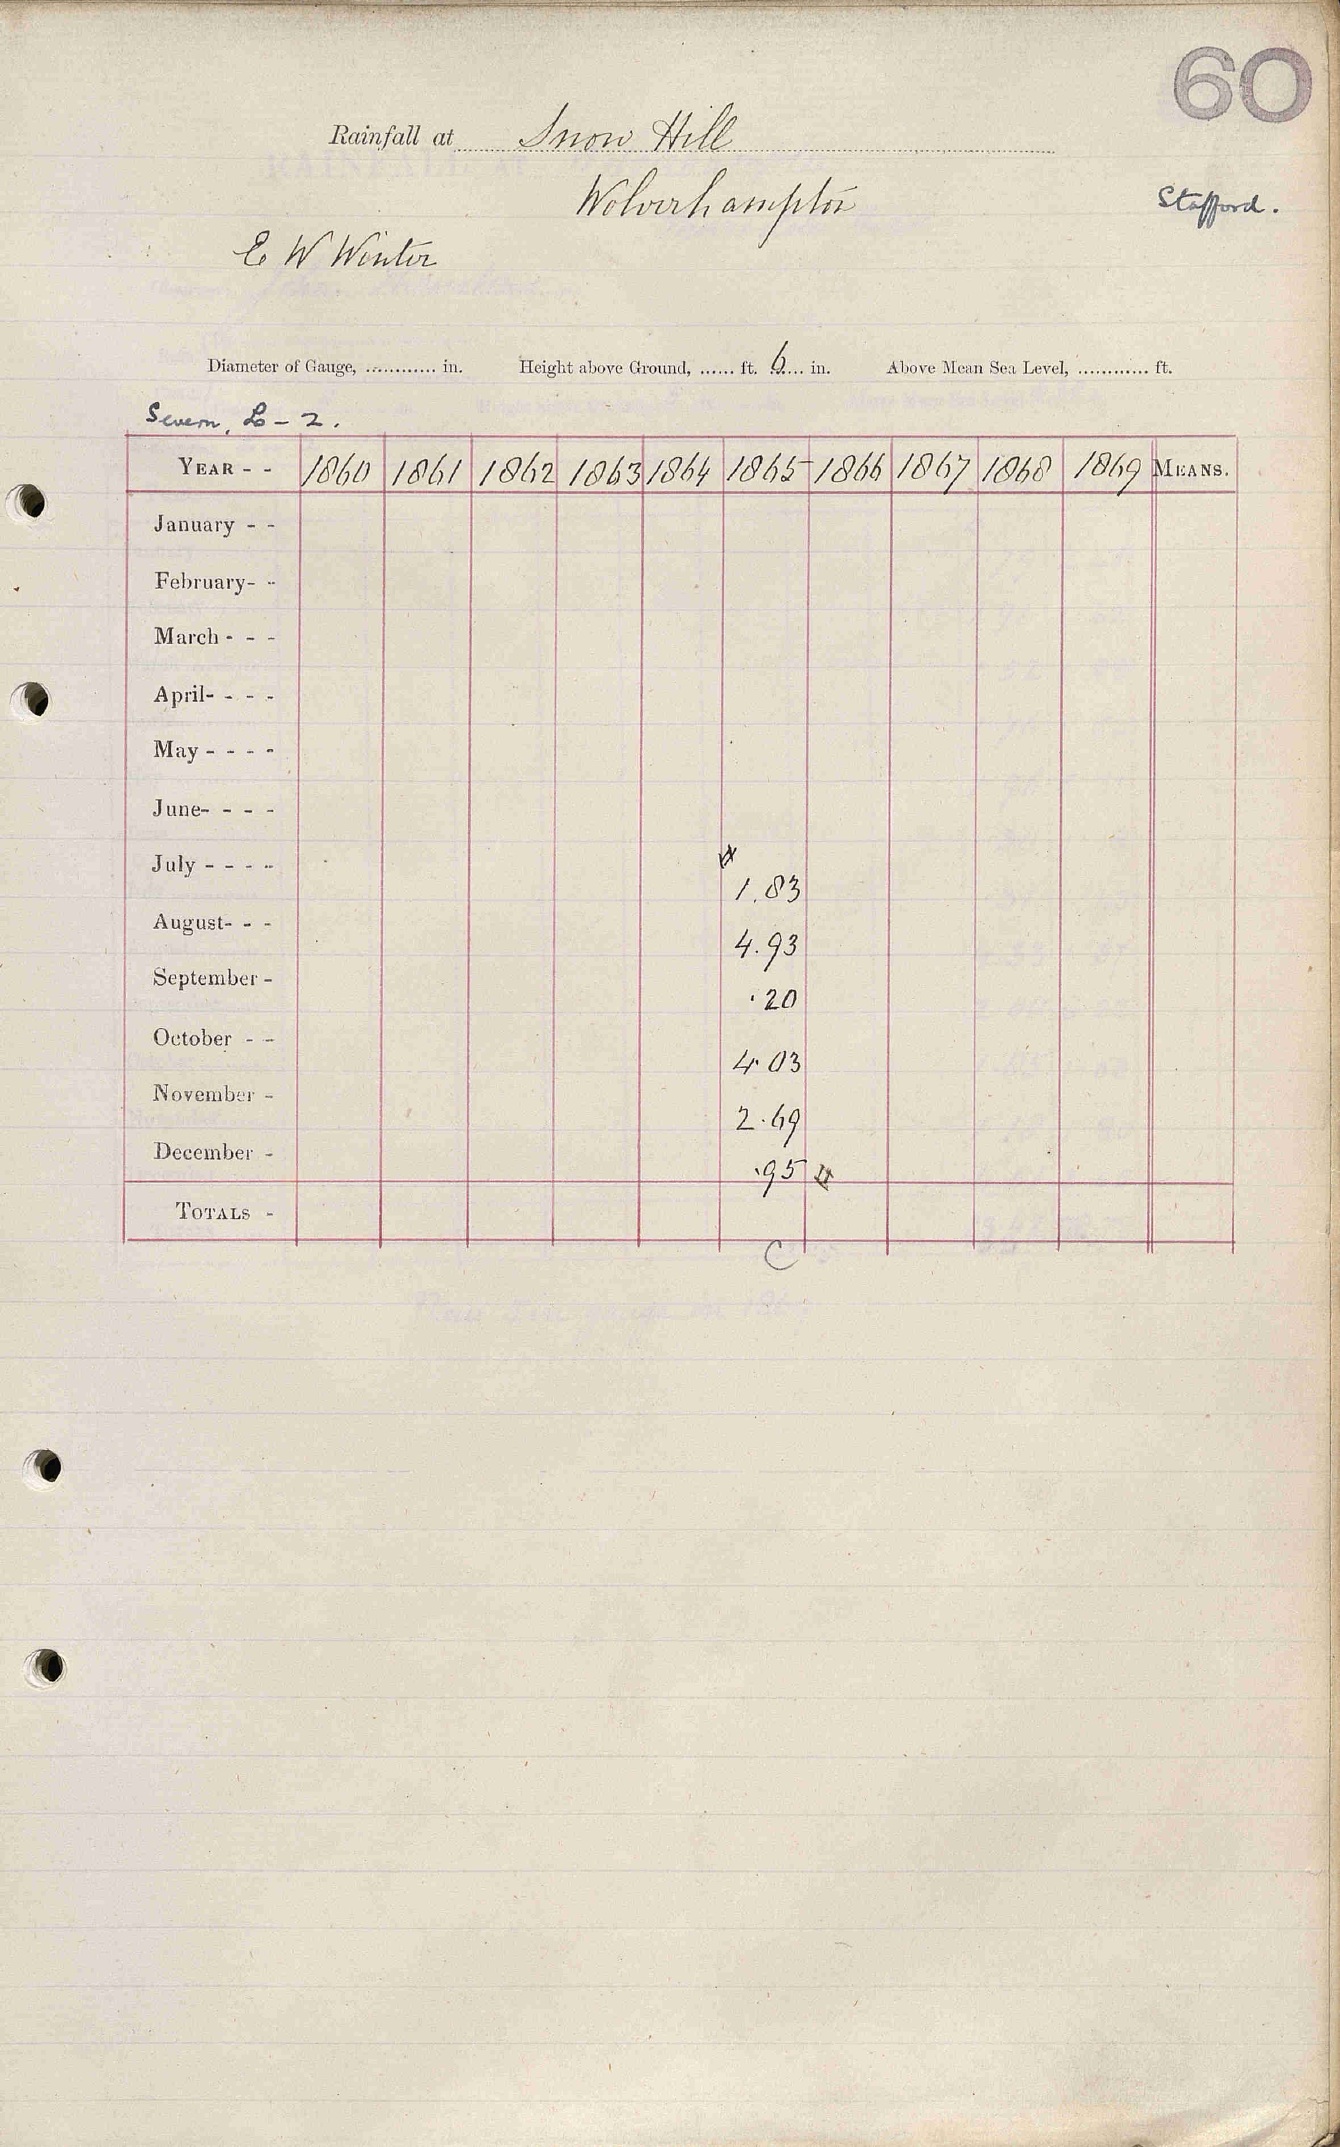 60
Rainfall at Snow Hill
Wolverhampton
Stafford.
E W Winter
Diameter of Gauge, ............ in. Height above Ground, ...... ft. 6 in. Above Mean Sea Level, ............ ft.
Severn, L - 2.
YEAR - - 1860 1861 1862 1863 1864 1865 1866 1867 1868 1869 MEANS.
January - -
February - -
March - - -
April - - - -
May - - - -
June - - - -
July - - - - 1.83
August - - - 4.93
September - .20
October - - 4.03
November - 2.69
December - .95
TOTALS -
C